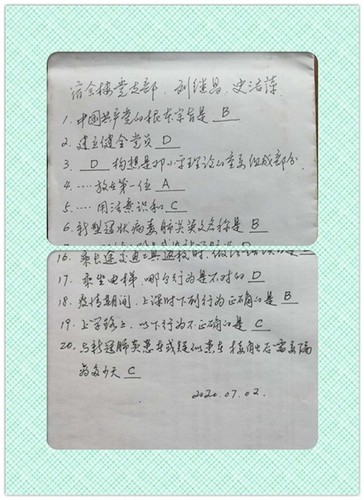 宿舍楼党支部 刘继昌、史洁萍
1. 中国共产党的根本宗旨是 B
2. 建立健全党员 D
3. D 构想是邓小平理论的重要组成部分
4. ····放在第一位 A
5. ····用法意识和 C
6. 新型冠状病毒肺炎英文名称是 B
16. 乘 交通工具返校时,
17. 乘坐电梯,哪个行为是不对的 D
18. 疫情期间,上课时下列行为正确的是 B
19. 上学路上,以下行为不正确的是 C
20. 与新冠肺炎患者或疑似患者接触后需隔
为多少天 C
2020.07.02.